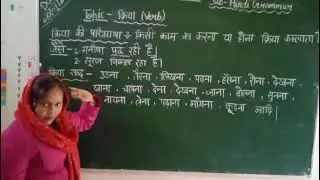 Sub- Hindi Grammar
Topic - क्रिया (Verb)
क्रिया की परिभाषा - किसी काम का करना या होना क्रिया कहलाता
जैसे - 1. मनीषा पढ़ रही है।
2. सूरज निकल रहा है।
क्रिया शब्द - उठना, लिखना, पढ़ना, हँसना, रोना, देखना,
खाना, चलना, देना, देखना, जाना, बोलना, सुनना,
नाचना, लेना, पढ़ाना, माँगना, कूदना आदि।